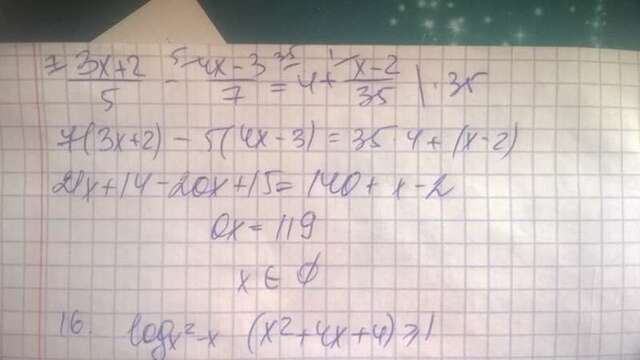 ⁷ (3x+2)/5 - ⁵ (4x-3)/7 = ³⁵ 4 + ¹ (x-2)/35 | · 35
7(3x+2) - 5(4x-3) = 35·4 + (x-2)
21x+14-20x+15=140+x-2
0x = 119
x ∈ ∅
16. log_{x²-x} (x²+4x+4) ≥ 1